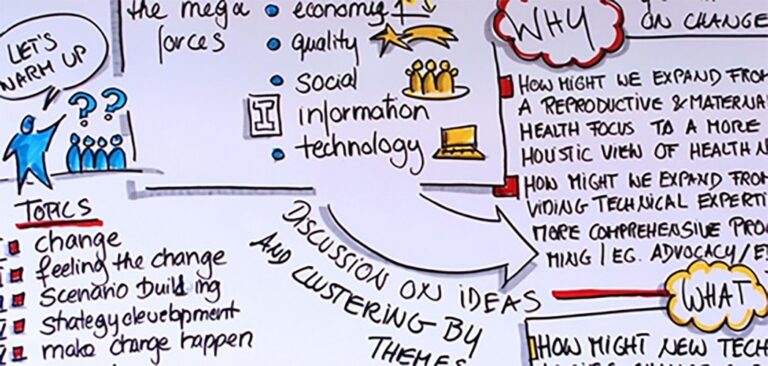 LET'S
WARM UP
??
the mega
forces
economic
quality
social
information
technology
TOPICS
change
feeling the change
scenario building
strategy development
make change happen
DISCUSSION ON IDEAS
AND CLUSTERING BY
THEMES
WHY
ON CHANGE
HOW MIGHT WE EXPAND FROM
A REPRODUCTIVE & MATERNA
HEALTH FOCUS TO A MORE
HOLISTIC VIEW OF HEALTH N
HOW MIGHT WE EXPAND FROM
VIDING TECHNICAL EXPERTI
MORE COMPREHENSIVE PRO
MING / EG. ADVOCACY/E
WHAT
HOW MIGHT NEW TECH